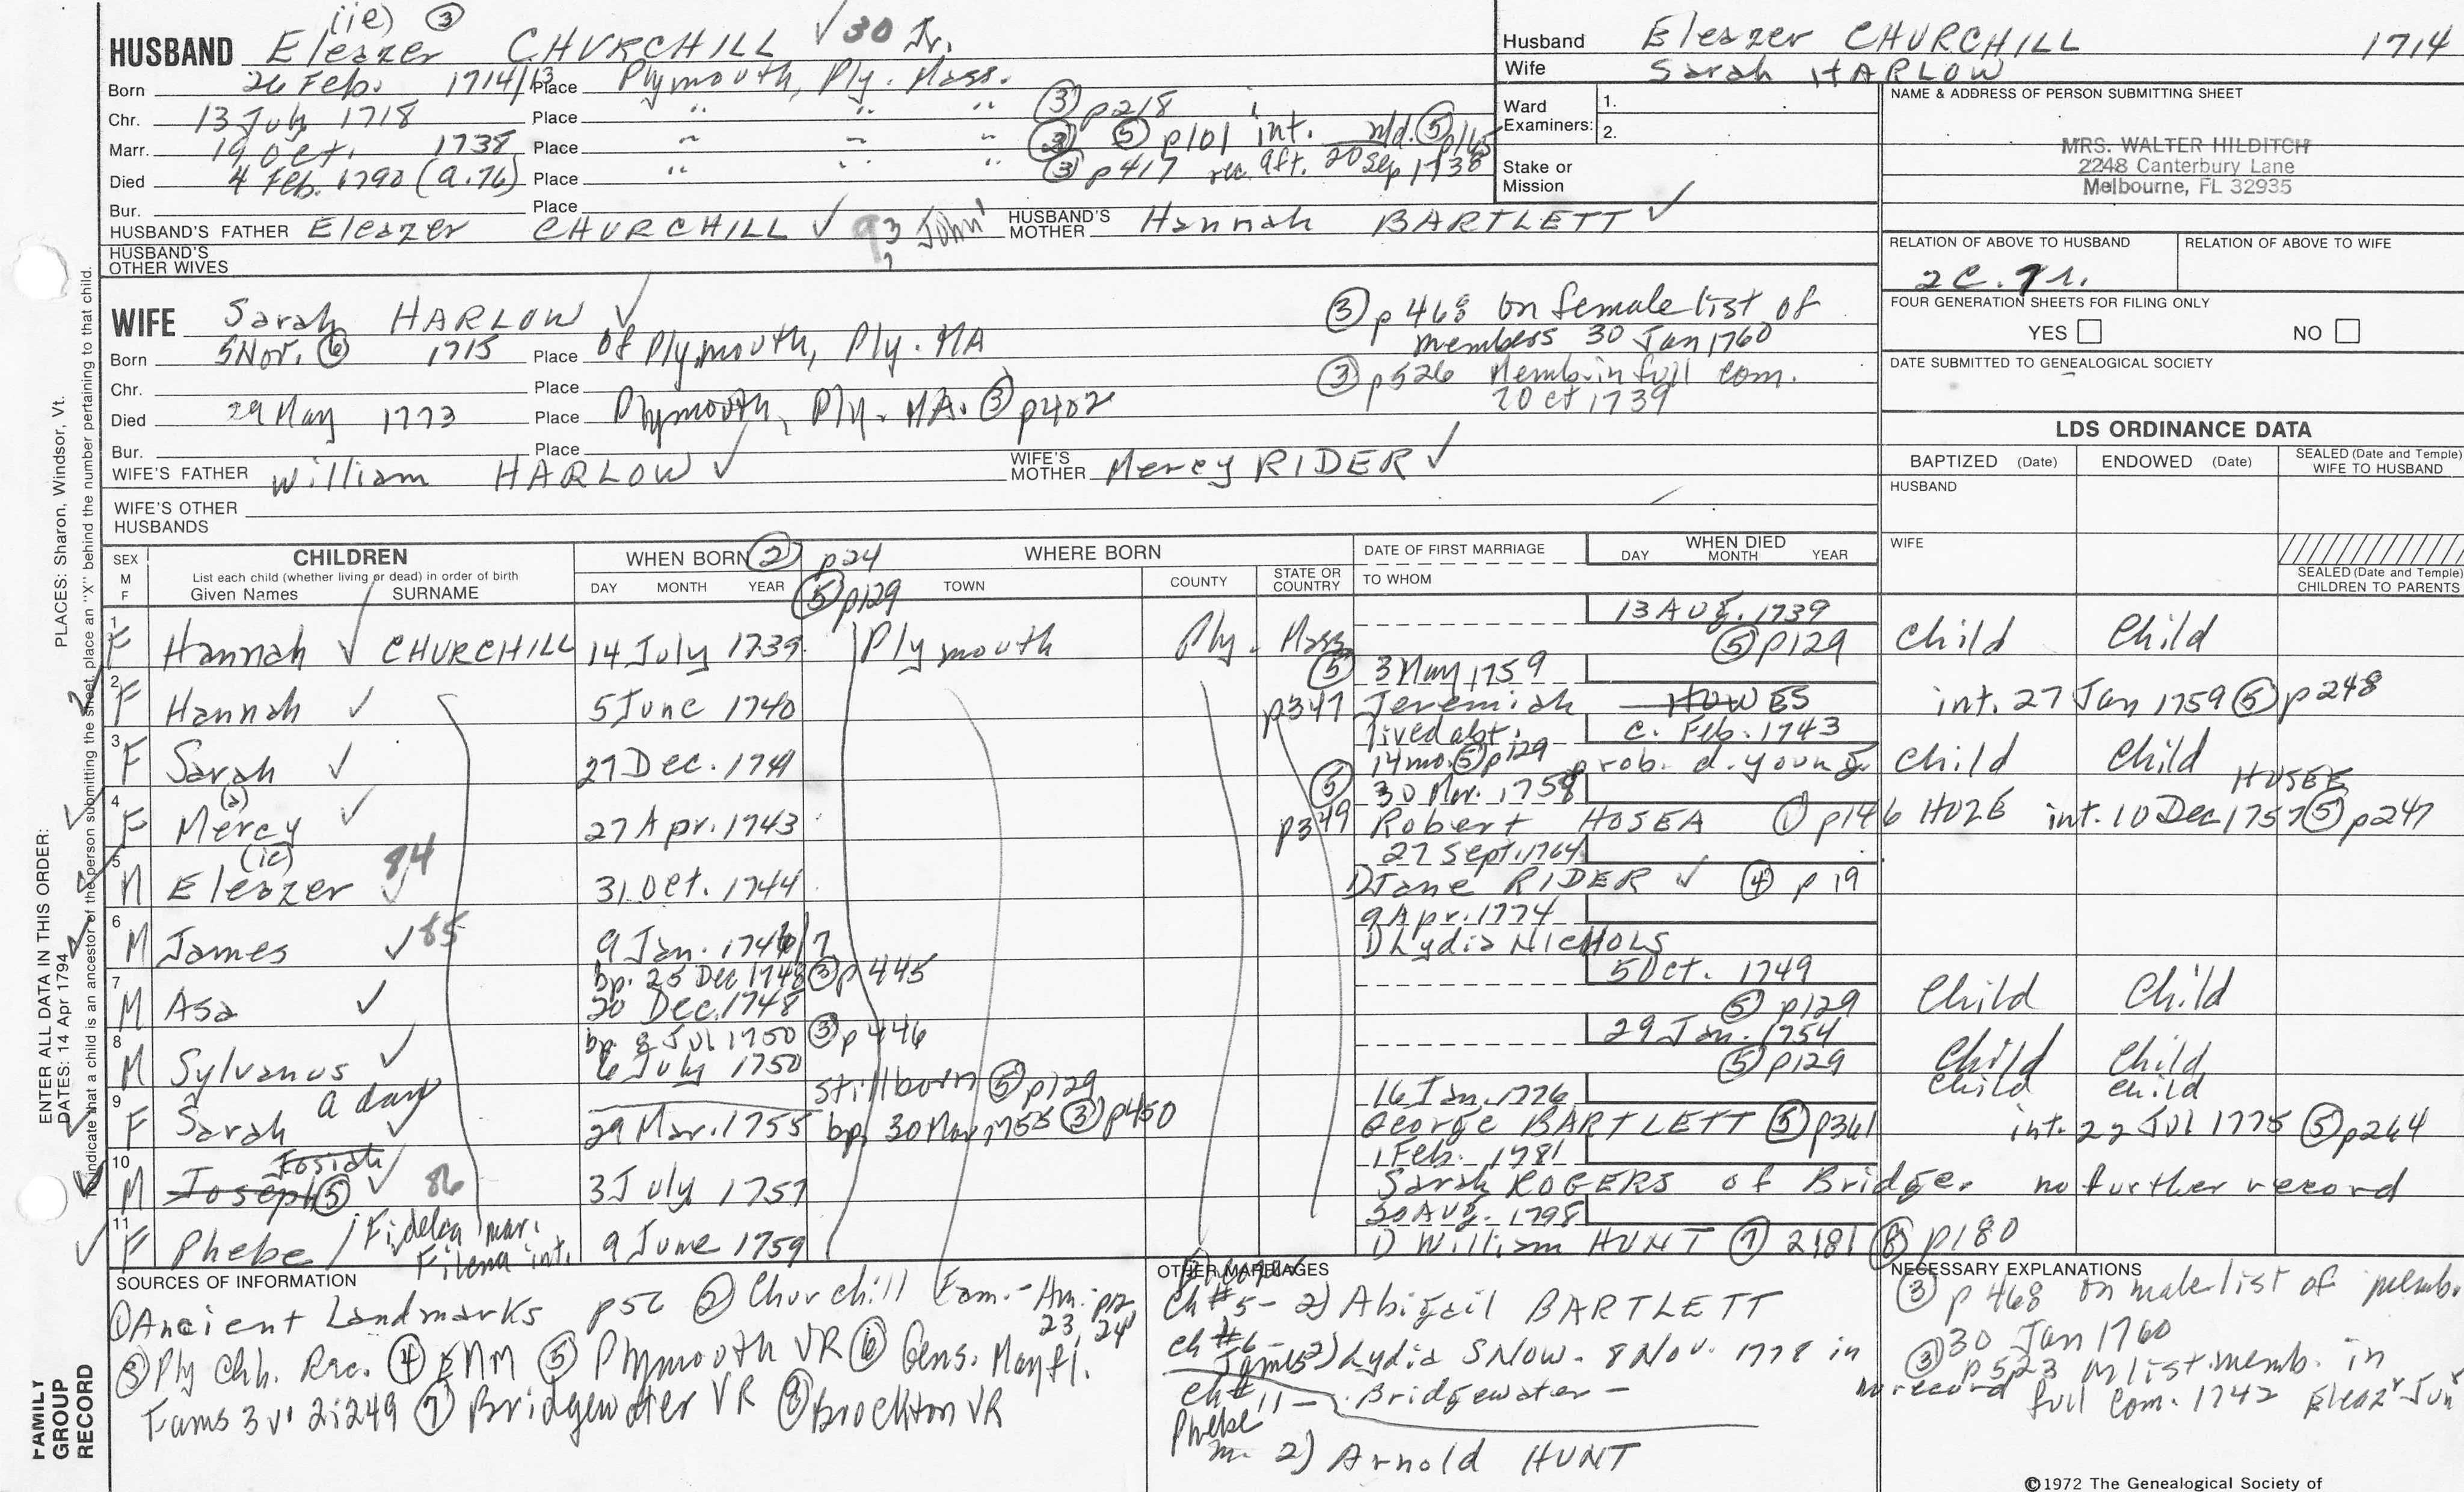 (ie) ③
HUSBAND Eleazer CHURCHILL ✓30 Jr.
Born 26 Feb. 1714/13 Place Plymouth, Ply. Mass.
Chr. 13 July 1718 Place " " " ③ p218
Marr. 19 Oct. 1738 Place " " " ③ ⑤ p101 int. n/d. ⑤ p165
Died 4 Feb. 1790 (a.76) Place " " " ③ p417 rec. aft. 20 Sep 1738
Bur. Place
HUSBAND'S FATHER Eleazer CHURCHILL ✓ 93 John' HUSBAND'S MOTHER Hannah BARTLETT ✓
HUSBAND'S OTHER WIVES
Husband Eleazer CHURCHILL 1714
Wife Sarah HARLOW
Ward Examiners: 1.
2.
Stake or Mission
NAME & ADDRESS OF PERSON SUBMITTING SHEET
MRS. WALTER HILDITCH
2248 Canterbury Lane
Melbourne, FL 32935
RELATION OF ABOVE TO HUSBAND RELATION OF ABOVE TO WIFE
2C. 7r.
FOUR GENERATION SHEETS FOR FILING ONLY
YES NO
DATE SUBMITTED TO GENEALOGICAL SOCIETY
WIFE Sarah HARLOW ✓
Born 5 Nov. ⑥ 1715 Place of Plymouth, Ply. MA
Chr. Place
Died 29 May 1773 Place Plymouth, Ply. MA. ③ p402
Bur. Place
③ p468 on female list of
members 30 Jan 1760
③ p526 Memb. in full com.
7 Oct 1739
WIFE'S FATHER William HARLOW ✓ WIFE'S MOTHER Mercy RIDER ✓
WIFE'S OTHER HUSBANDS
LDS ORDINANCE DATA
BAPTIZED (Date) ENDOWED (Date) SEALED (Date and Temple) WIFE TO HUSBAND
HUSBAND
WIFE
SEALED (Date and Temple) CHILDREN TO PARENTS
SEX M F CHILDREN WHEN BORN ② p24 WHERE BORN DATE OF FIRST MARRIAGE WHEN DIED DAY MONTH YEAR
List each child (whether living or dead) in order of birth
Given Names SURNAME DAY MONTH YEAR ⑤ p129 TOWN COUNTY STATE OR COUNTRY TO WHOM
13 Aug. 1739
1 F Hannah ✓ CHURCHILL 14 July 1739 Plymouth Ply. Mass ⑤ p129 Child Child
⑤ 3 May 1759
2 F Hannah ✓ 5 June 1740 p347 Jeremiah HOWES int. 27 Jan 1759 ⑤ p248
lived abt. c. Feb. 1743
3 F Sarah ✓ 27 Dec. 1741 14 mo. ⑤ p129 prob. d. young Child Child
⑤ 30 Mar. 1758 HUSEE
4 F Mercy (a) ✓ 27 Apr. 1743 p349 Robert HOSEA ① p146 HOZE int. 10 Dec 1757 ⑤ p247
27 Sept. 1764
5 M Eleazer (ie) 84 ✓ 31 Oct. 1744 1) Jane RIDER ✓ ④ p19
9 Apr. 1774
6 M James ✓ 85 9 Jan. 1746/7 1) Lydia NICHOLS
bp. 25 Dec 1748 ③ p445 5 Oct. 1749
7 M Asa ✓ 20 Dec. 1748 ⑤ p129 Child Child
bp. 8 Jul 1750 ③ p446 29 Jan. 1754
8 M Sylvanus ✓ 6 July 1750 ⑤ p129 Child Child
a dau stillborn ⑤ p129 Child Child
16 Jan. 1776
9 F Sarah ✓ 29 Mar. 1755 bp. 30 Mar 1755 ③ p450 George BARTLETT ⑤ p361 int. 22 Jul 1775 ⑤ p264
Josiah 1 Feb. 1781
10 M Joseph ⑤ ✓ 86 3 July 1757 Sarah ROGERS of Bridge. no further record
30 Aug. 1798
11 F Phebe / Fidelea mar. Filena int. 9 June 1759 1) William HUNT ⑦ 2:181 ⑧ p180
SOURCES OF INFORMATION
① Ancient Landmarks p56 ② Churchill Fam.- Am. p12, 23, 24
③ Ply Chh. Rec. ④ ENM ⑤ Plymouth VR ⑥ Gens. Mayfl.
Fams 3 v. 2:249 ⑦ Bridgewater VR ⑧ Brockton VR
OTHER MARRIAGES
Eleazer
Ch #5 - 2) Abigail BARTLETT
Ch #6 - James 2) Lydia SNOW - 8 Nov. 1778 in
Bridgewater -
Ch #11 - Phebe
m. 2) Arnold HUNT
NECESSARY EXPLANATIONS
③ p468 on male list of memb.
30 Jan 1760
③ p523 on list memb. in
full com. 1742 Eleazr Junr
no record
ENTER ALL DATA IN THIS ORDER:
DATES: 14 Apr 1794
PLACES: Sharon, Windsor, Vt.
To indicate that a child is an ancestor of the person submitting the sheet, place an "X" behind the number pertaining to that child.
FAMILY GROUP RECORD
©1972 The Genealogical Society of